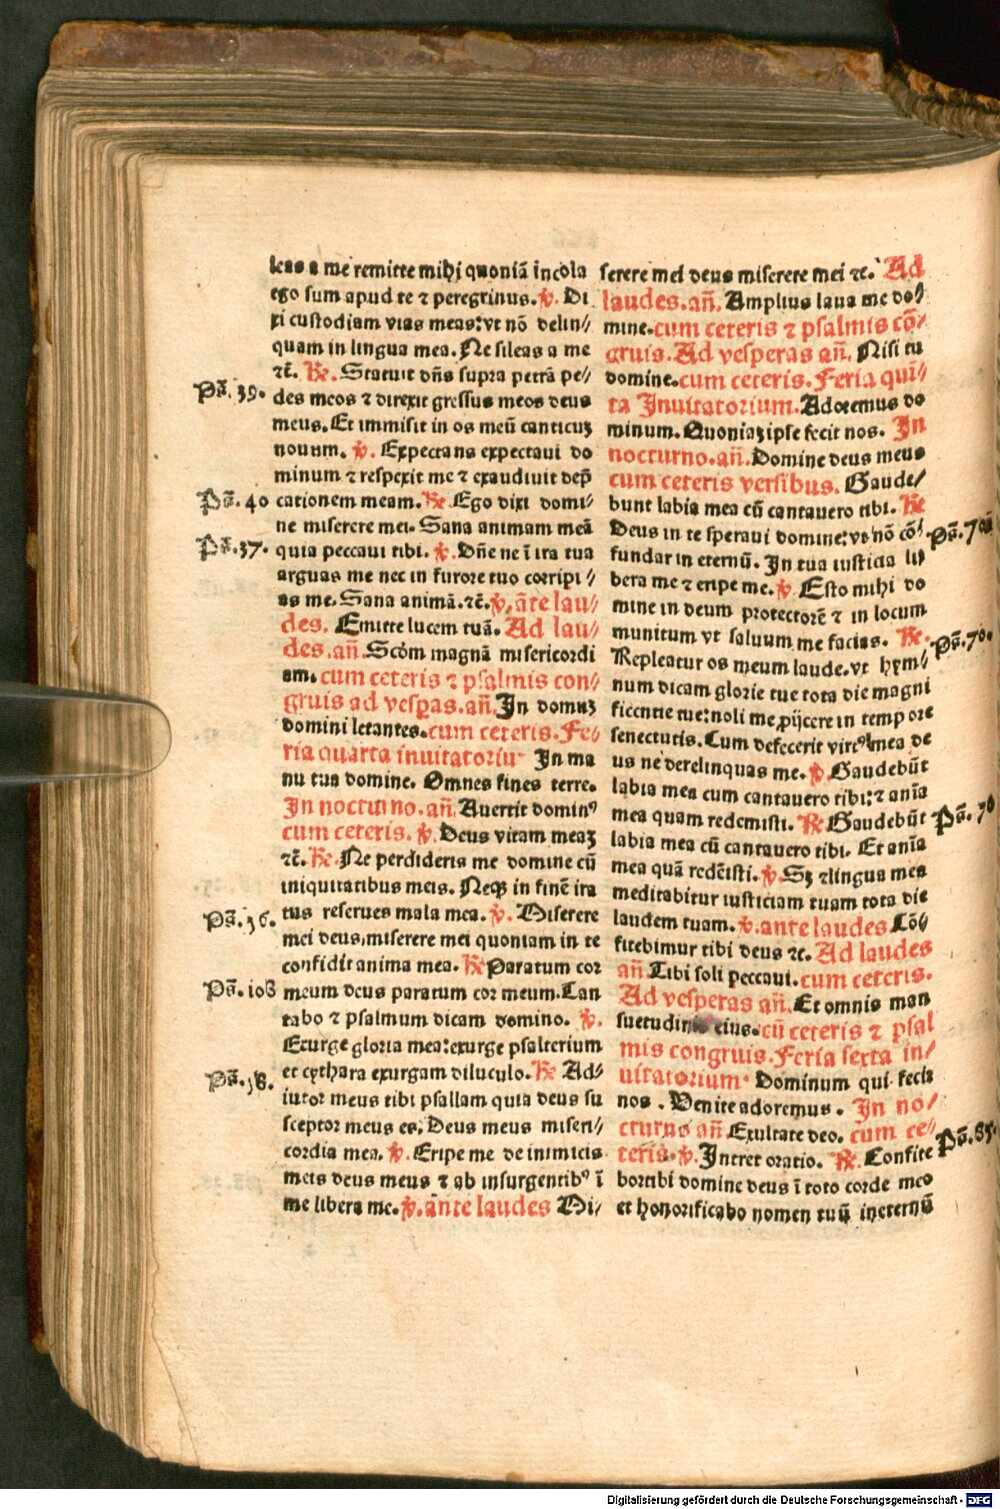 leas a me remitte mihi quoniā incola
ego sum apud te ⁊ peregrinus. ℣. Di
xi custodiam vias meas: vt nō delin⸗
quam in lingua mea. Ne sileas a me
⁊č. ℞. Statuit dñs supra petrā pe⸗
Ps̄. 39.
des meos ⁊ direxit gressus meos deus
meus. Et immisit in os meū canticuꝫ
nouum. ℣. Expectans expectaui do
minum ⁊ respexit me ⁊ exaudiuit dep̄
Ps̄. 40
cationem meam. ℞. Ego dixi domi⸗
ne miserere mei. Sana animam meā
Ps̄. 37.
quia peccaui tibi. ℣. Dñe ne ī ira tua
arguas me nec in furore tuo corripi⸗
as me. Sana animā. ⁊č. ℣. āte lau⸗
des. Emitte lucem tuā. Ad lau⸗
des. añ. Scḋm magnā misericordi
am. cum ceteris ⁊ psalmis con⸗
gruis ad vesꝑas. añ. In domuꝫ
domini letantes. cum ceteris. Fe⸗
ria quarta inuitatoriū In ma
nu tua domine. Omnes fines terre.
In nocturno. añ. Auertit dominꝰ
cum ceteris. ℣. Deus vitam meaꝫ
⁊č. ℞. Ne perdideris me domine cū
iniquitatibus meis. Neqꝫ in finē ira
Ps̄. 36.
tus reserues mala mea. ℣. Miserere
mei deus, miserere mei quoniam in te
confidit anima mea. ℞ Paratum cor
Ps̄. 108
meum deus paratum cor meum. Can
tabo ⁊ psalmum dicam domino. ℣.
Exurge gloria mea: exurge psalterium
et cythara exurgam diluculo. ℞ Ad⸗
Ps̄. 58.
iutor meus tibi psallam quia deus su
sceptor meus es. Deus meus miseri⸗
cordia mea. ℣. Eripe me de inimicis
meis deus meus ⁊ ab insurgentibꝰ ī
me libera me. ℣. ante laudes Mi⸗
serere mei deus miserere mei ⁊c. Ad
laudes. añ. Amplius laua me do⸗
mine. cum ceteris ⁊ psalmis cō⸗
gruis. Ad vesperas añ. Nisi tu
domine. cum ceteris. Feria quī⸗
ta Inuitatorium. Adoremus do
minum. Quoniaꝫ ipse fecit nos. In
nocturno. añ. Domine deus meus
cum ceteris versibus. Gaude⸗
bunt labia mea cū cantauero tibi. ℞
Deus in te speraui domine: vt nō cō⸗
Ps̄. 70
fundar in eternū. In tua iusticia li⸗
bera me ⁊ eripe me. ℣. Esto mihi do
mine in deum protectorē ⁊ in locum
munitum vt saluum me facias. ℞.
Ps̄. 70.
Repleatur os meum laude. vt hym⸗
num dicam glorie tue tota die magni
ficentie tue: noli me ꝓijcere in tempore
senectutis. Cum defecerit virtꝰ mea de
us ne derelinquas me. ℣. Gaudebūt
labia mea cum cantauero tibi: ⁊ anīa
mea quam redemisti. ℞ Gaudebūt
Ps̄. 70
labia mea cū cantauero tibi. Et anīa
mea quā redēisti. ℣. Sꝫ ⁊ lingua mea
meditabitur iusticiam tuam tota die
laudem tuam. ℣. ante laudes Cō⸗
fitebimur tibi deus ⁊c. Ad laudes
añ. Tibi soli peccaui. cum ceteris.
Ad vesperas añ. Et omnis man
suetudinis eius. cū ceteris ⁊ psal
mis congruis. Feria sexta in⸗
uitatorium. Dominum qui fecit
nos. Venite adoremus. In no⸗
cturno añ. Exultate deo. cum ce⸗
Ps̄. 85.
teris. ℣. Intret oratio. ℞. Confite
bor tibi domine deus ī toto corde meo
et honorificabo nomen tuū in eternū
Digitalisierung gefördert durch die Deutsche Forschungsgemeinschaft - DFG